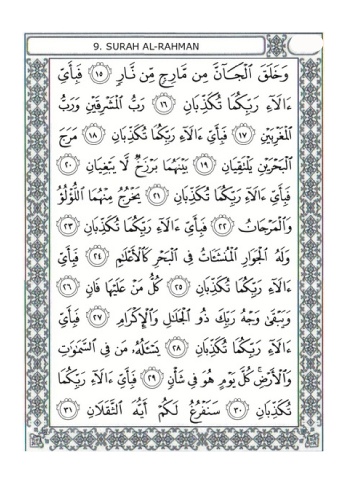 9. SURAH AL-RAHMAN
وَخَلَقَ ٱلْجَآنَّ مِن مَّارِجٍ مِّن نَّارٍ ١٥ فَبِأَىِّ
ءَالَآءِ رَبِّكُمَا تُكَذِّبَانِ ١٦ رَبُّ ٱلْمَشْرِقَيْنِ وَرَبُّ
ٱلْمَغْرِبَيْنِ ١٧ فَبِأَىِّ ءَالَآءِ رَبِّكُمَا تُكَذِّبَانِ ١٨ مَرَجَ
ٱلْبَحْرَيْنِ يَلْتَقِيَانِ ١٩ بَيْنَهُمَا بَرْزَخٌ لَّا يَبْغِيَانِ ٢٠
فَبِأَىِّ ءَالَآءِ رَبِّكُمَا تُكَذِّبَانِ ٢١ يَخْرُجُ مِنْهُمَا ٱللُّؤْلُؤُ
وَٱلْمَرْجَانُ ٢٢ فَبِأَىِّ ءَالَآءِ رَبِّكُمَا تُكَذِّبَانِ ٢٣
وَلَهُ ٱلْجَوَارِ ٱلْمُنشَـَٔاتُ فِى ٱلْبَحْرِ كَٱلْأَعْلَـٰمِ ٢٤ فَبِأَىِّ
ءَالَآءِ رَبِّكُمَا تُكَذِّبَانِ ٢٥ كُلُّ مَنْ عَلَيْهَا فَانٍ ٢٦
وَيَبْقَىٰ وَجْهُ رَبِّكَ ذُو ٱلْجَلَـٰلِ وَٱلْإِكْرَامِ ٢٧ فَبِأَىِّ
ءَالَآءِ رَبِّكُمَا تُكَذِّبَانِ ٢٨ يَسْـَٔلُهُۥ مَن فِى ٱلسَّمَـٰوَٰتِ
وَٱلْأَرْضِ ۚ كُلَّ يَوْمٍ هُوَ فِى شَأْنٍ ٢٩ فَبِأَىِّ ءَالَآءِ رَبِّكُمَا
تُكَذِّبَانِ ٣٠ سَنَفْرُغُ لَكُمْ أَيُّهَ ٱلثَّقَلَانِ ٣١